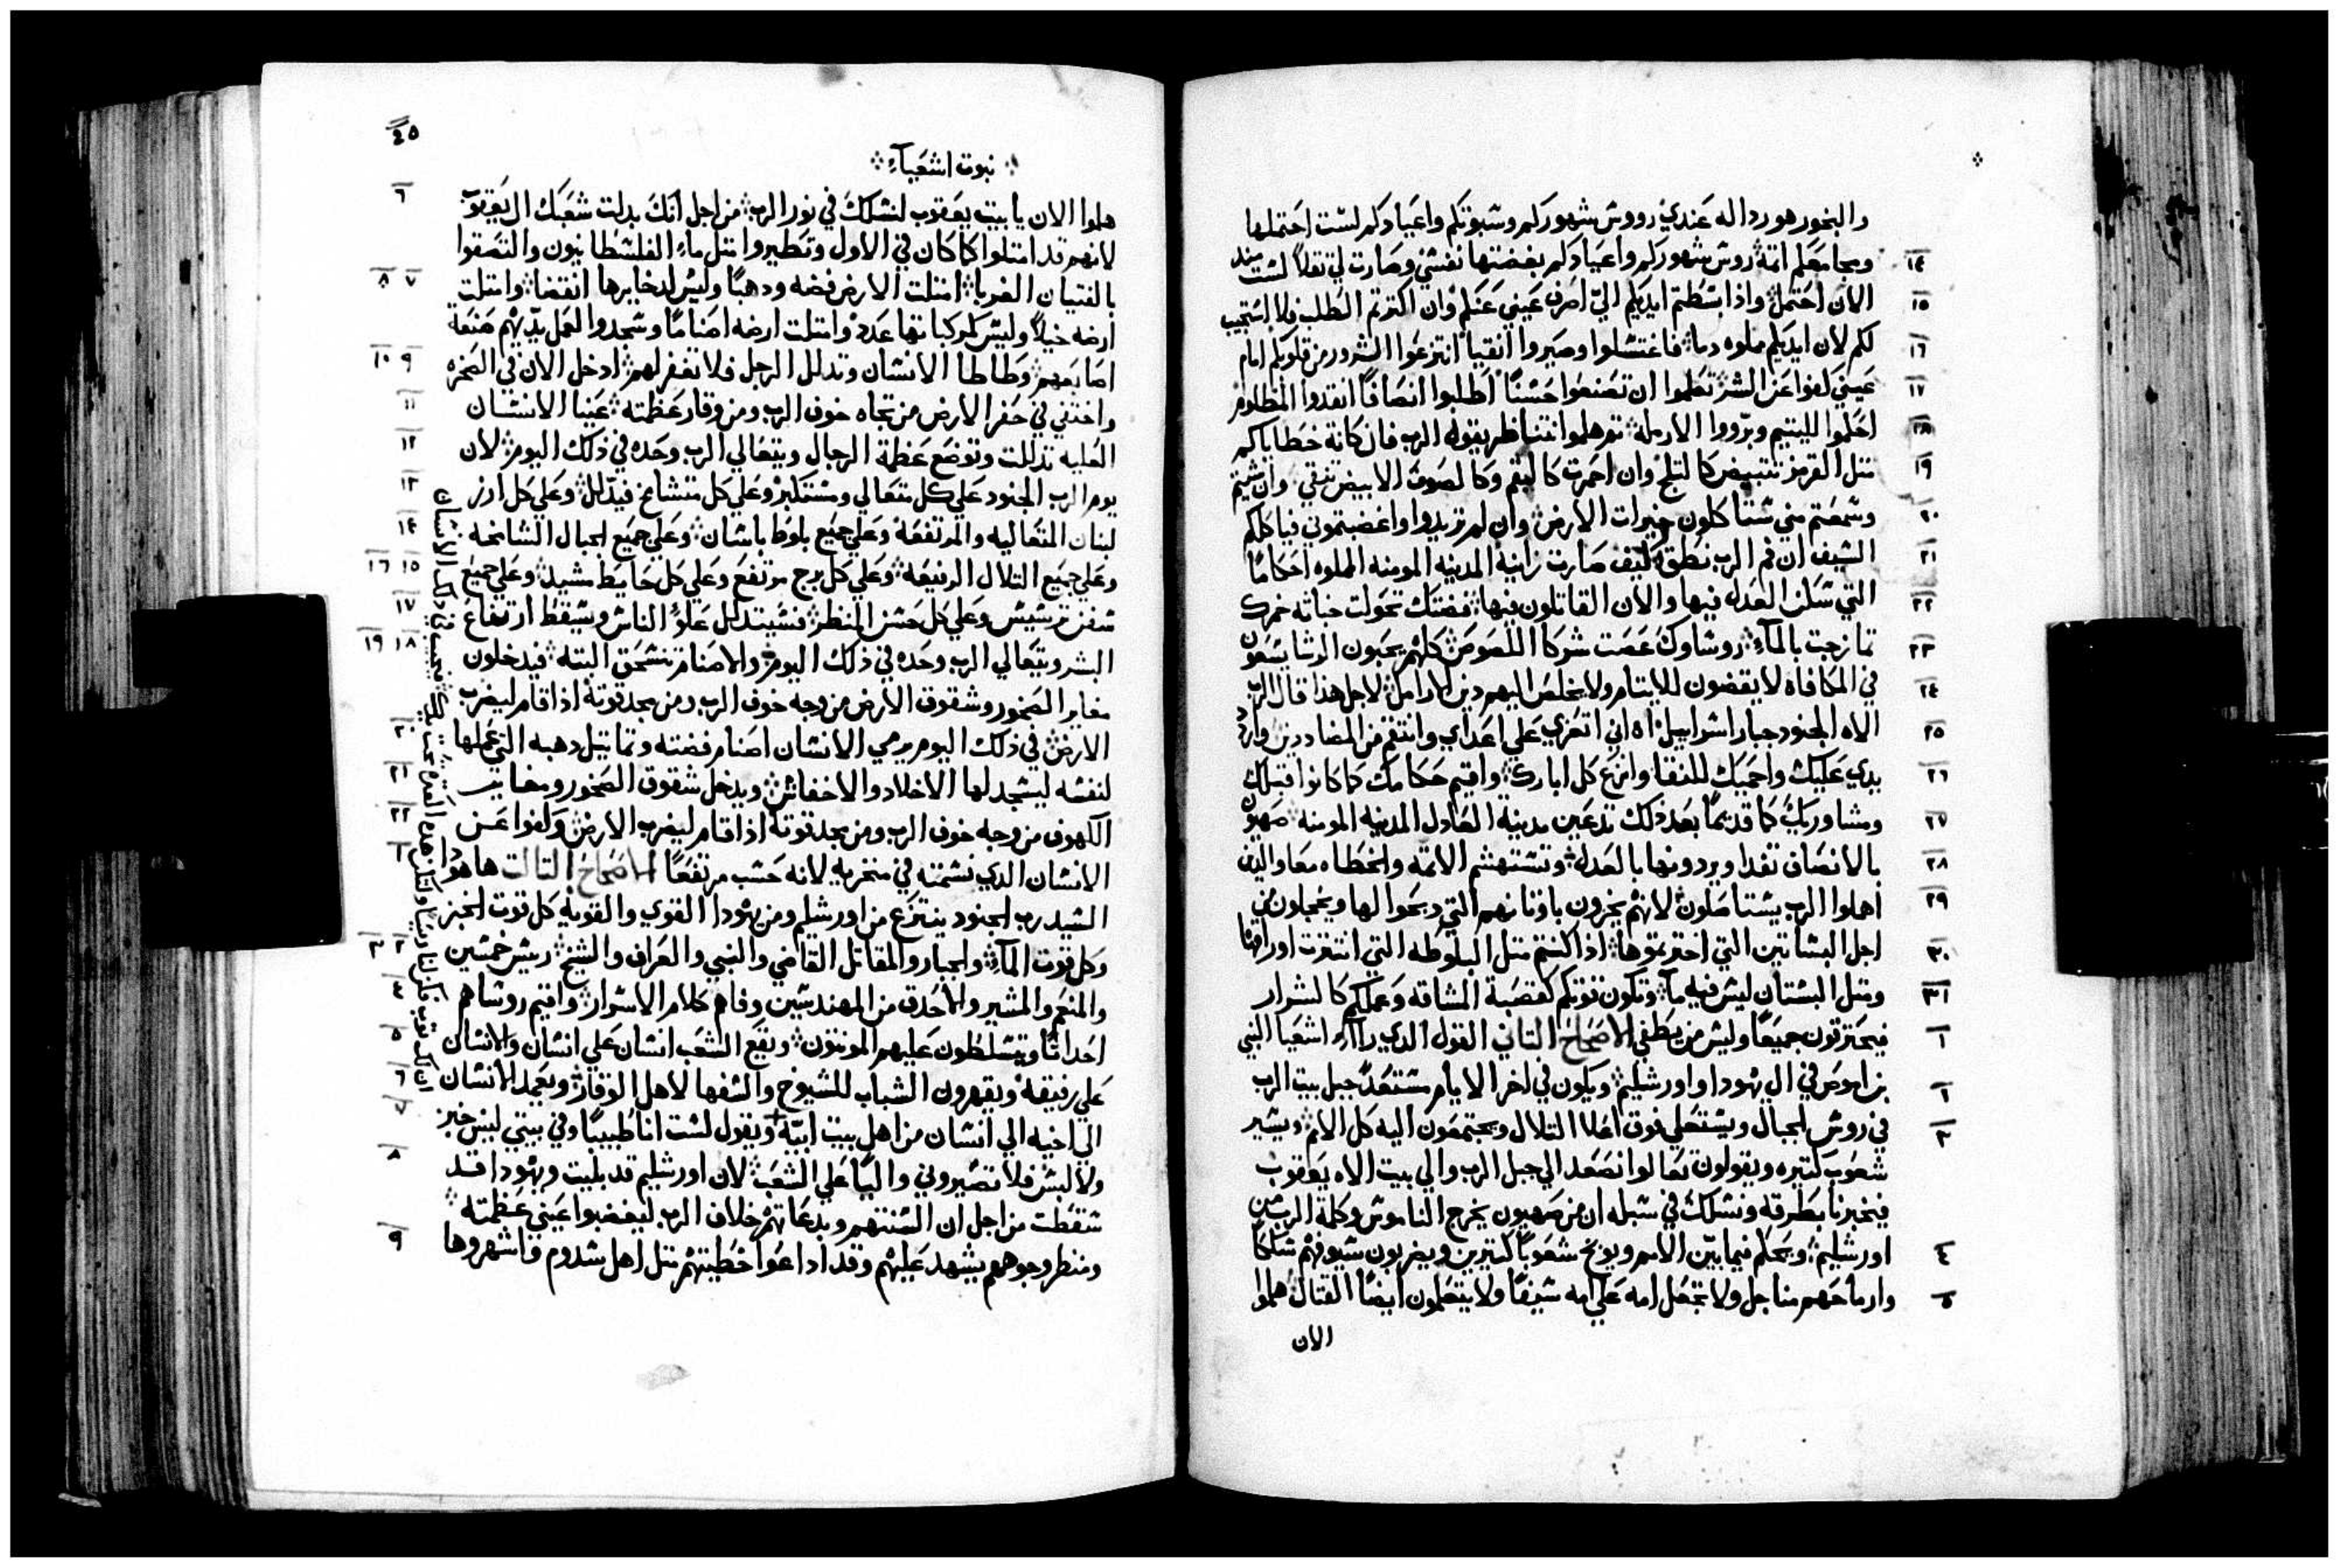 والبخور هو رداله عندي رووش شهوركم وسبوتكم واعيادكم لست احتملها
١٤ ومجامعكم اتمة روش شهوركم واعيادكم بغضتها نفسي وصارت لي ثقلاً لست منذ
١٥ الان احتمل واذا بسطتم ايديكم اليّ اصرف عيني عنكم وان اكثرتم الطلب فلا استجيب
١٦ لكم لان ايديكم ملوه دما فاغتسلوا وصيروا انقيا انتزعوا الشرور من قلوبكم امام
١٧ عيني كفوا عن الشر تعلموا ان تصنعوا حسنًا اطلبوا انصافًا انقدوا المظلوم
١٨ احكموا لليتيم وبرّروا الارمله تم هلموا نتناظر يقول الرب فان كانة خطاياكم
١٩ متل القرمز تتبيض كالتلج وان احمرت كالبقم وكالصوف الابيض تنقي وان شيتم
٢٠ وسمعتم مني ستاكلون خيرات الارض وان لم تريدوا واغضبتموني فياكلكم
٢١ السيف ان فم الرب نطق كيف صارت زانية المدينه المومنه المملوه احكامًا
٢٢ التي سكن العدل فيها والان القاتلون فيها فضتك تحولت خباته خمرك
٢٣ تمازجت بالمآء روساوك عصت شركا اللصوص كلهم يحبون الرشا يسعون
٢٤ في المكافاه لا يقضون للايتام ولا يخلص اليهم دين الارامل لاجل هذا قال الرب
٢٥ الاه الجنود جبار اسراييل اه اني اتعزي علي اعداي وانتقم من المضاددين وارد
٢٦ يدي عليك واحميك للنقا وانزع كل ابارك واقيم حكامك كما كانوا قبلك
٢٧ ومشاوريك كما قديمًا بعد ذلك تدعين مدينة العادل المدينه المومنه صهيون
٢٨ بالانصاف تفدا ويردونها بالعدل وتستهشم الاتمه والخطاه معا والذين
٢٩ اهلوا الرب يستاصلون لانهم يخزون باوتانهم التي دبحوا لها ويخجلون من
٣٠ اجل البساتين التي اخترتموها اذا كنتم متل البلوطه التي انتترت اوراقها
٣١ ومتل البستان ليس فيه مآء وتكون قوتكم كقصبة المشاقه وعملكم كالشرار
١ فيحترقون جميعًا وليس من يطفي الاصحاح التاني القول الدي راآه اشعيا النبي
٢ بن اموص في ال يهودا واورشليم ويكون في اخر الايام مستعدًّ جبل بيت الرب
٣ في روس الجبال ويستعلي فوق اعلا التلال ويجتمعون اليه كل الامم ويسير
شعوب كتيره ويقولون تعالوا نصعد الي جبل الرب والي بيت الاه يعقوب
فيخبرنا بطرقه ونسلك في سبله ان من صهيون يخرج الناموس وكلمة الرب من
٤ اورشليم ويحكم فيما بين الامم ويوبخ شعوبًا كتيرين ويضربون سيوفهم سككا
٥ وارماحهم مناجل ولا تجعل امه علي امه سيفًا ولا يتعلمون ايضًا القتال هلموا
الان
٤٥
نبوت اشعيآء
٦ هلموا الان يا بيت يعقوب لنسلك في نور الرب من اجل انك بدلت شعبك ال يعقوب
لانهم قد امتلوا كما كان في الاول وتطيروا متل ماء الفلسطانيون والتصقوا
٧ ٨ بالفتيان الغربا امتلت الارض فضه ودهبًا وليس لدخايرها انقضا وامتلت
ارضه خيلاً وليس لمركباتها عدد وامتلت ارضه اصنامًا وسجدوا لعمل يدّيهم صنعة
٩ ١٠ اصابعهم وطاطا الانسان وتدلل الرجل فلا تغفر لهم ادخل الان في الصخره
١١ واختفي في حفر الارض من تجاه خوف الرب ومن وقار عظمته عينا الانسان
١٢ العليه تدللت وتوضع عظمة الرجال ويتعالي الرب وحده في ذلك اليوم لان
١٣ يوم الرب الجنود علي كل متعالي ومستكبر وعلي كل متشامخ فيدلل وعلي كل ارز
١٤ لبنان المتعاليه والمرتفعه وعلي جميع بلوط باشان وعلي جميع الجبال الشامخه
١٥ ١٦ وعلي جميع التلال الرفيعه وعلي كل برج مرتفع وعلي كل حايط مشيد وعلي جميع
١٧ سفن ترشيش وعلي كل حسن المنظر فسيتدلل علوّ الناس ويسقط ارتفاع
١٨ ١٩ البشر ويتعالي الرب وحده في ذلك اليوم والاصنام تنسحق البته فيدخلون
مغاير الصخور وشقوق الارض من وجه خوف الرب ومن مجد قوته اذا قام ليضرب
٢٠ الارض في ذلك اليوم يرمي الانسان اصنام فضته وتماتيل دهبه التي عملها
٢١ لنفسه ليسجد لها الاخلاد والاخفاش ويدخل شقوق الصخور ومغاير
٢٢ الكهوف من وجه خوف الرب ومن مجد قوته اذا قام ليضرب الارض وكفوا عن
١ الانسان الدي نسمته في منخريه لانه حسب مرتفعًا الاصحاح التالت هاهودا
السيد رب الجنود ينتزع من اورشليم ومن يهودا القوي والقويه كل قوت الخبز
٢ ٣ وكل قوت المآء والجبار والمقاتل القاضي والنبي والعراف والشيخ رييس خمسين
٤ والمنعم والمشير والاحدق من المهندسين وفاهم كلام الاسرار واقيم روساهم
٥ احداثًا ويتسلطون عليهم المونتون ويقع الشعب انسان علي انسان والانسان
٦ علي رفيقه ويقهرون الشباب للشيوخ والسفها لاهل الوقار ويعمد الانسان
٧ الي اخيه الي انسان من اهل بيت ابيه ويقول لست انا طبيبًا وفي بيتي ليس خبز
٨ ولا لبس فلا تصيروني واليًا علي الشعب لان اورشليم قد بليت ويهودا قد
سقطت من اجل ان السنتهم وبدعاتهم خلاف الرب ليغضبوا عيني عظمته
٩ ومنظر وجوههم يشهد عليهم وقد اداعوا خطيتهم متل اهل سدوم فاشهروها